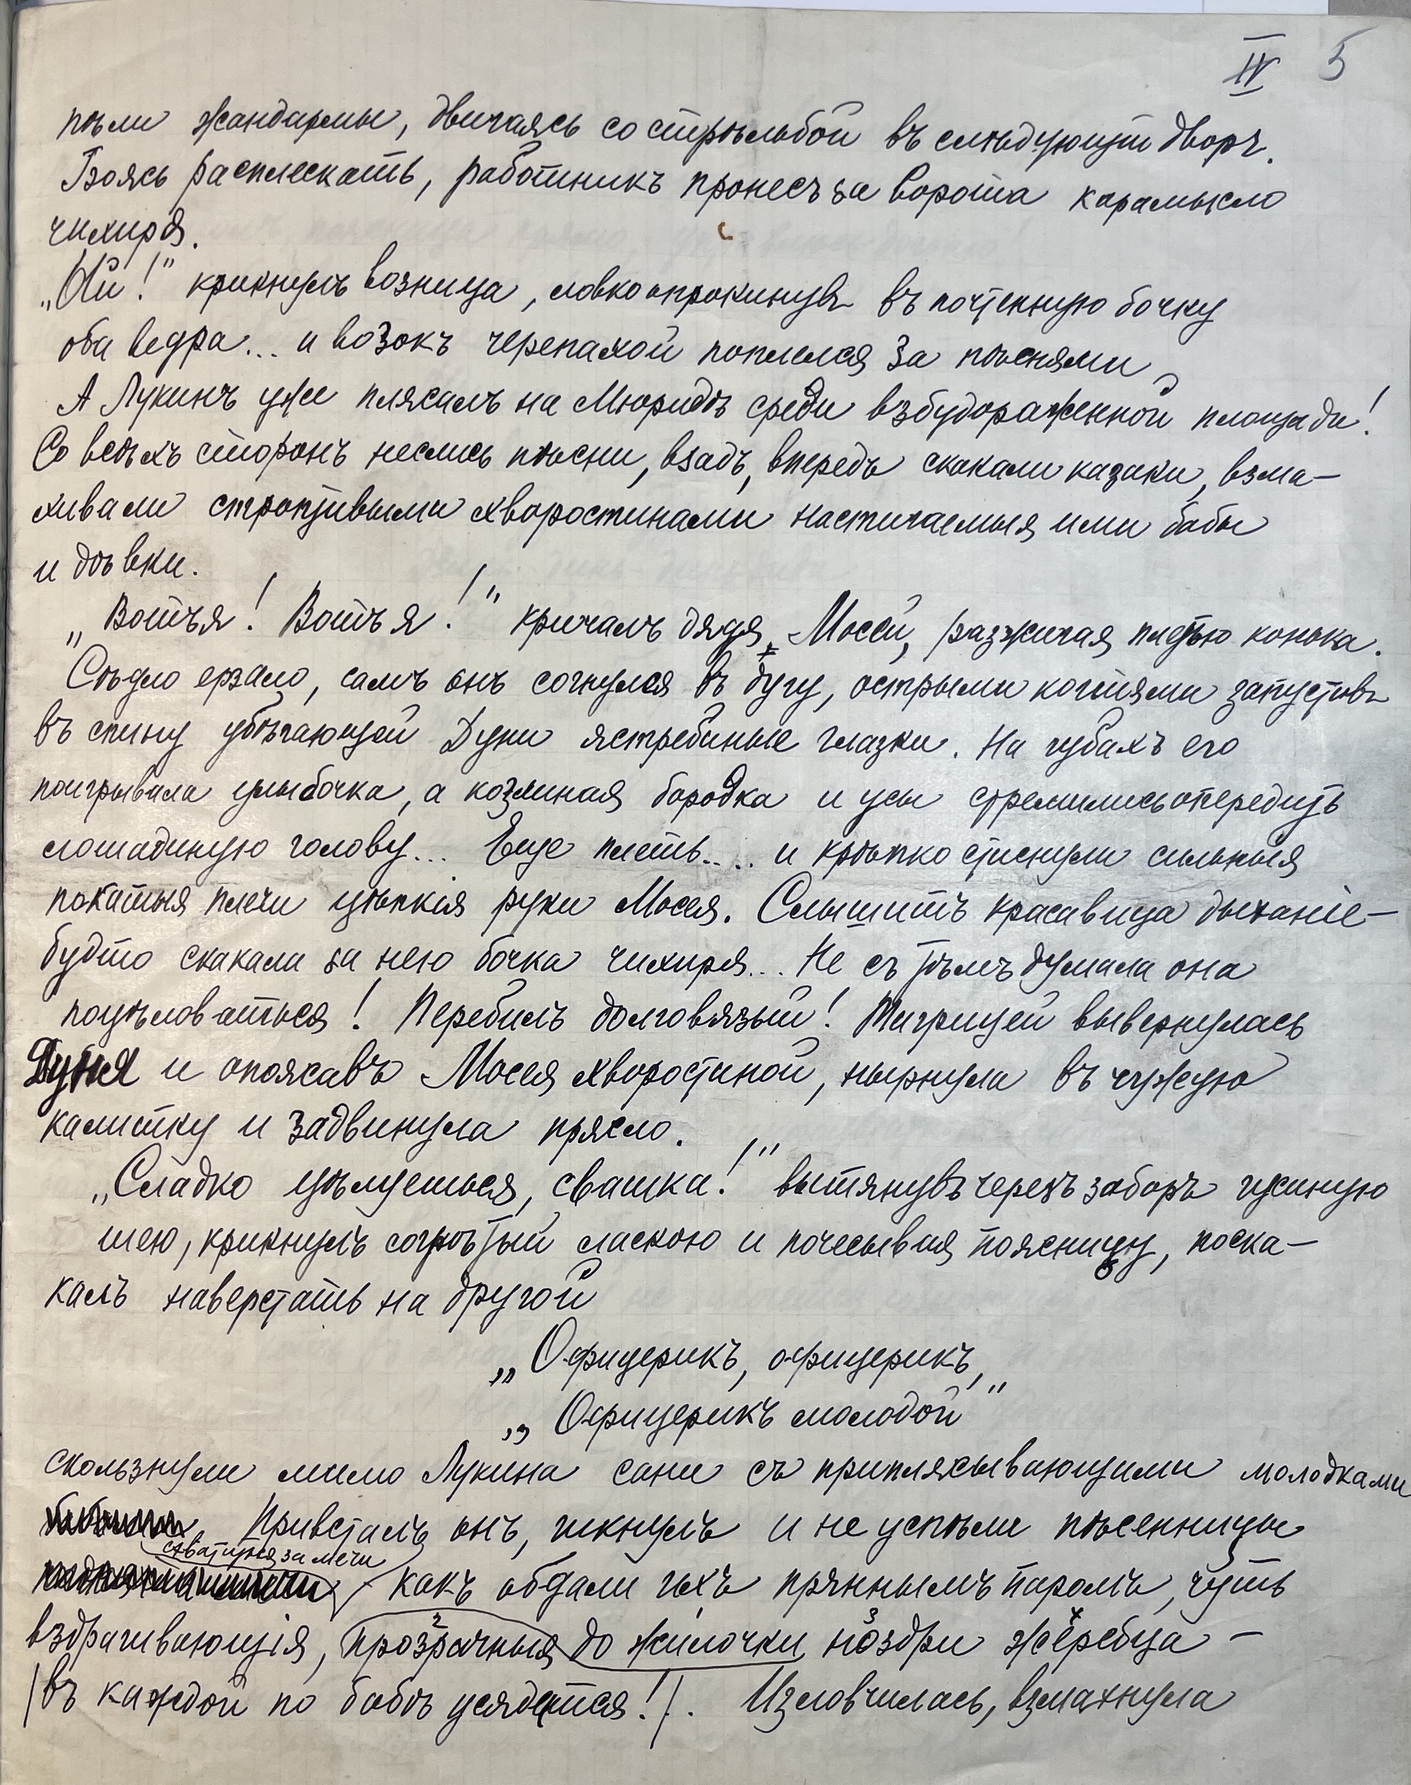 IV 5
пѣли жандармы, двигаясь со стрѣльбой въ слѣдующій дворъ.
Боясь расплескать, работникъ пронесъ за ворота карамысло
чихиря.
„Ой!" крикнулъ возница, ловко опрокинувъ въ почтенную бочку
оба ведра... и возокъ черепахой поплелся за пѣснями
А Лукинъ уже плясалъ на Мюридѣ среди взбудораженной площади!
Со всѣхъ сторонъ неслись пѣсни, взадъ, впередъ скакали казаки, взма-
хивали строптивыми хворостинами настигаемыя ими бабы
и дѣвки.
„Вотъ я! Вотъ я!" кричалъ дядя Мосей, разжигая плетью конька.
Сѣдло ерзало, самъ онъ согнулся въ дугу, острыми когтями запустивъ
въ спину убѣгающей Дуни ястребиные глазки. На губахъ его
поигрывала улыбочка, а козлиная бородка и усы стремились опередить
лошадиную голову... Еще плеть.... и крѣпко стиснули сильныя
покатыя плечи цѣпкія руки Мосея. Слышитъ красавица дыханіе-
будто скакала за нею бочка чихиря... Не съ тѣмъ думала она
поцѣловаться! Перебилъ долговязый! Тигрицей вывернулась
Дуня и опоясавъ Мосея хворостиной, нырнула въ чужую
калитку и задвинула прясло.
„Сладко цѣлуешься, свашка!" вытянувъ черезъ заборъ гусиную
шею, крикнулъ согрѣтый ласкою и почесывая поясницу, поска-
калъ наверстать на другой
„Офицерикъ, офицерикъ,
„Офицерикъ молодой"
скользнули мимо Лукина сани съ приплясывающими молодками
Привсталъ онъ, гикнулъ и не успѣли пѣсенницы
схватиться за мечи
какъ обдали ихъ пряннымъ паромъ, чуть
вздрагивающія, прозрачныя до жилочки ноздри жеребца -
/въ каждой по бабѣ усядется!/. Изловчилась, взмахнула